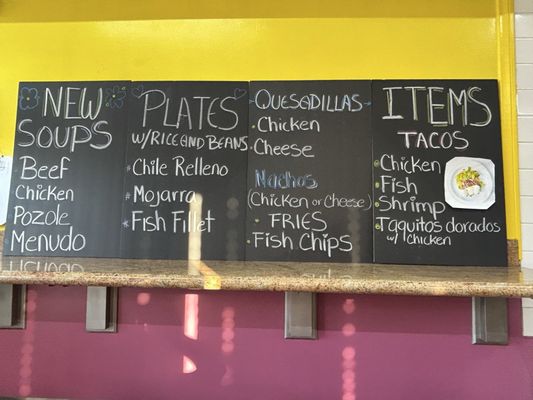 NEW
SOUPS
Beef
Chicken
Pozole
Menudo
PLATES
W/RICE AND BEANS
Chile Relleno
Mojarra
Fish Fillet
QUESADILLAS
Chicken
Cheese
Nachos
(Chicken or Cheese)
FRIES
Fish Chips
ITEMS
TACOS
Chicken
Fish
Shrimp
Taquitos dorados
w/ Chicken